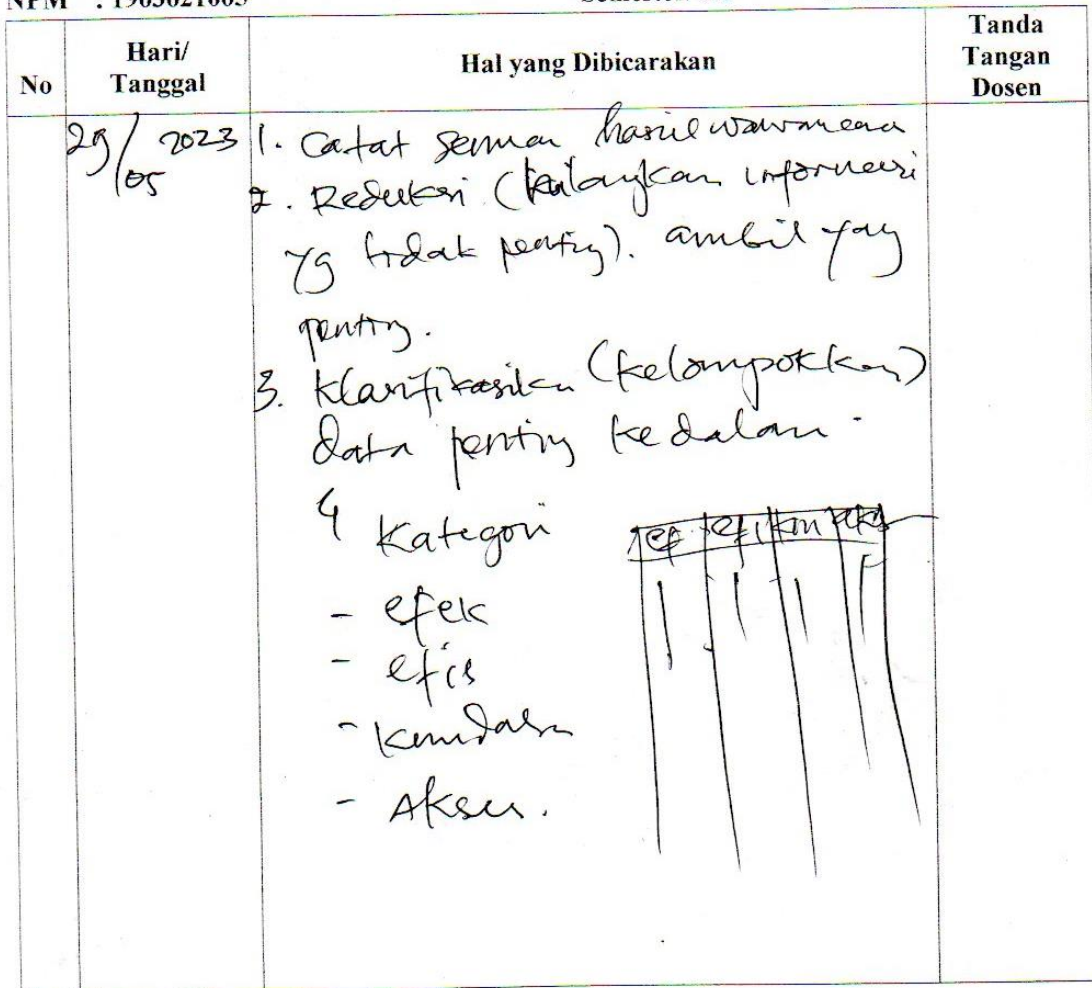 No
Hari/
Tanggal
Hal yang Dibicarakan
Tanda
Tangan
Dosen
29/05 2023
1. Catat semua hasil wawancara
2. Reduksi (hilangkan informasi
yg tidak penting). ambil yang
penting.
3. Klasifikasikan (kelompokkan)
data penting kedalam
4 Kategori
- efek
- efis
- Kemudahan
- Akses.
ef efi km aks